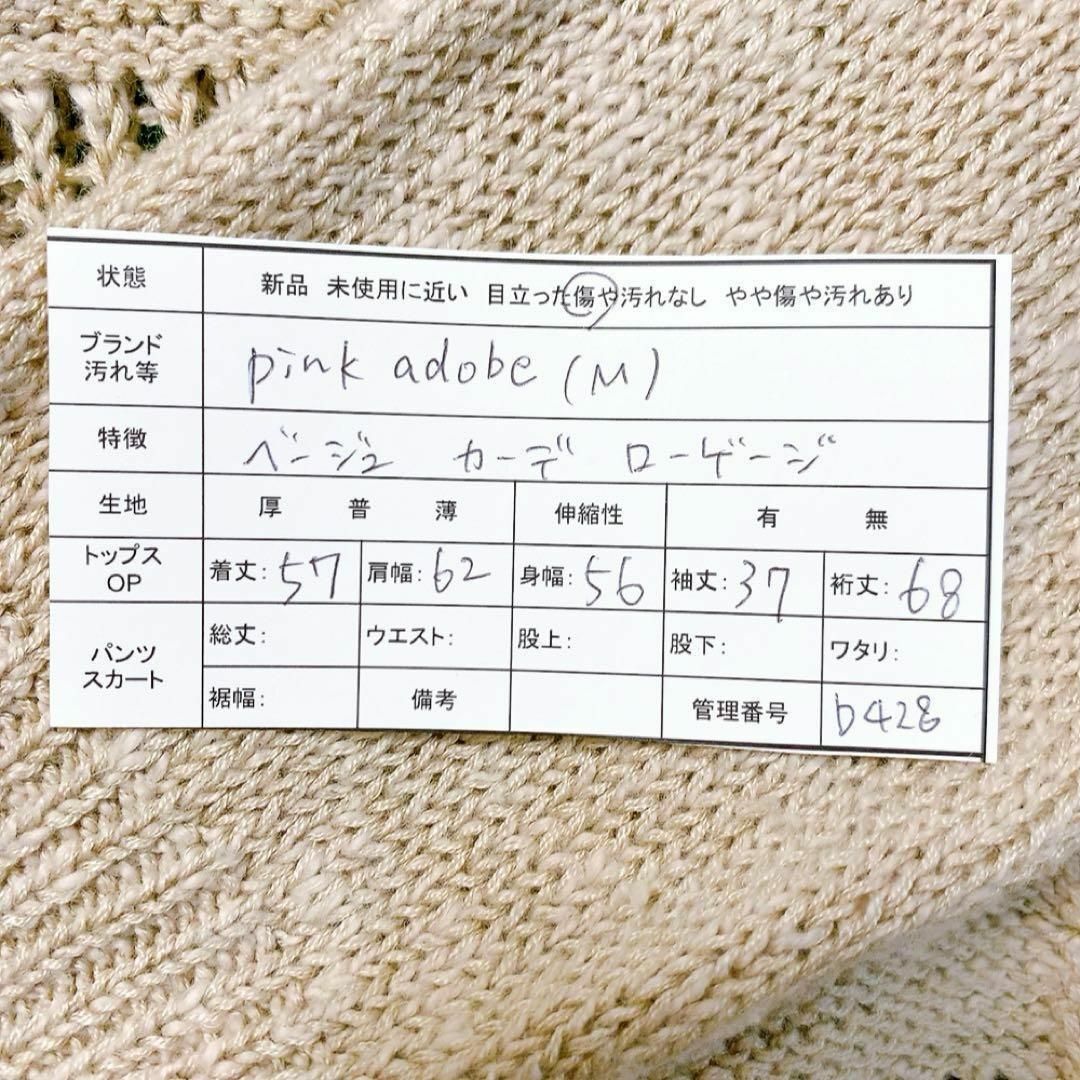 状態 新品 未使用に近い 目立った傷や汚れなし やや傷や汚れあり
ブランド
汚れ等 pink adobe (M)
特徴 ベージュ カーデ ローゲージ
生地 厚 普 薄 伸縮性 有 無
トップス
OP 着丈: 57 肩幅: 62 身幅: 56 袖丈: 37 裄丈: 68
パンツ
スカート 総丈: ウエスト: 股上: 股下: ワタリ:
裾幅: 備考 管理番号 b428